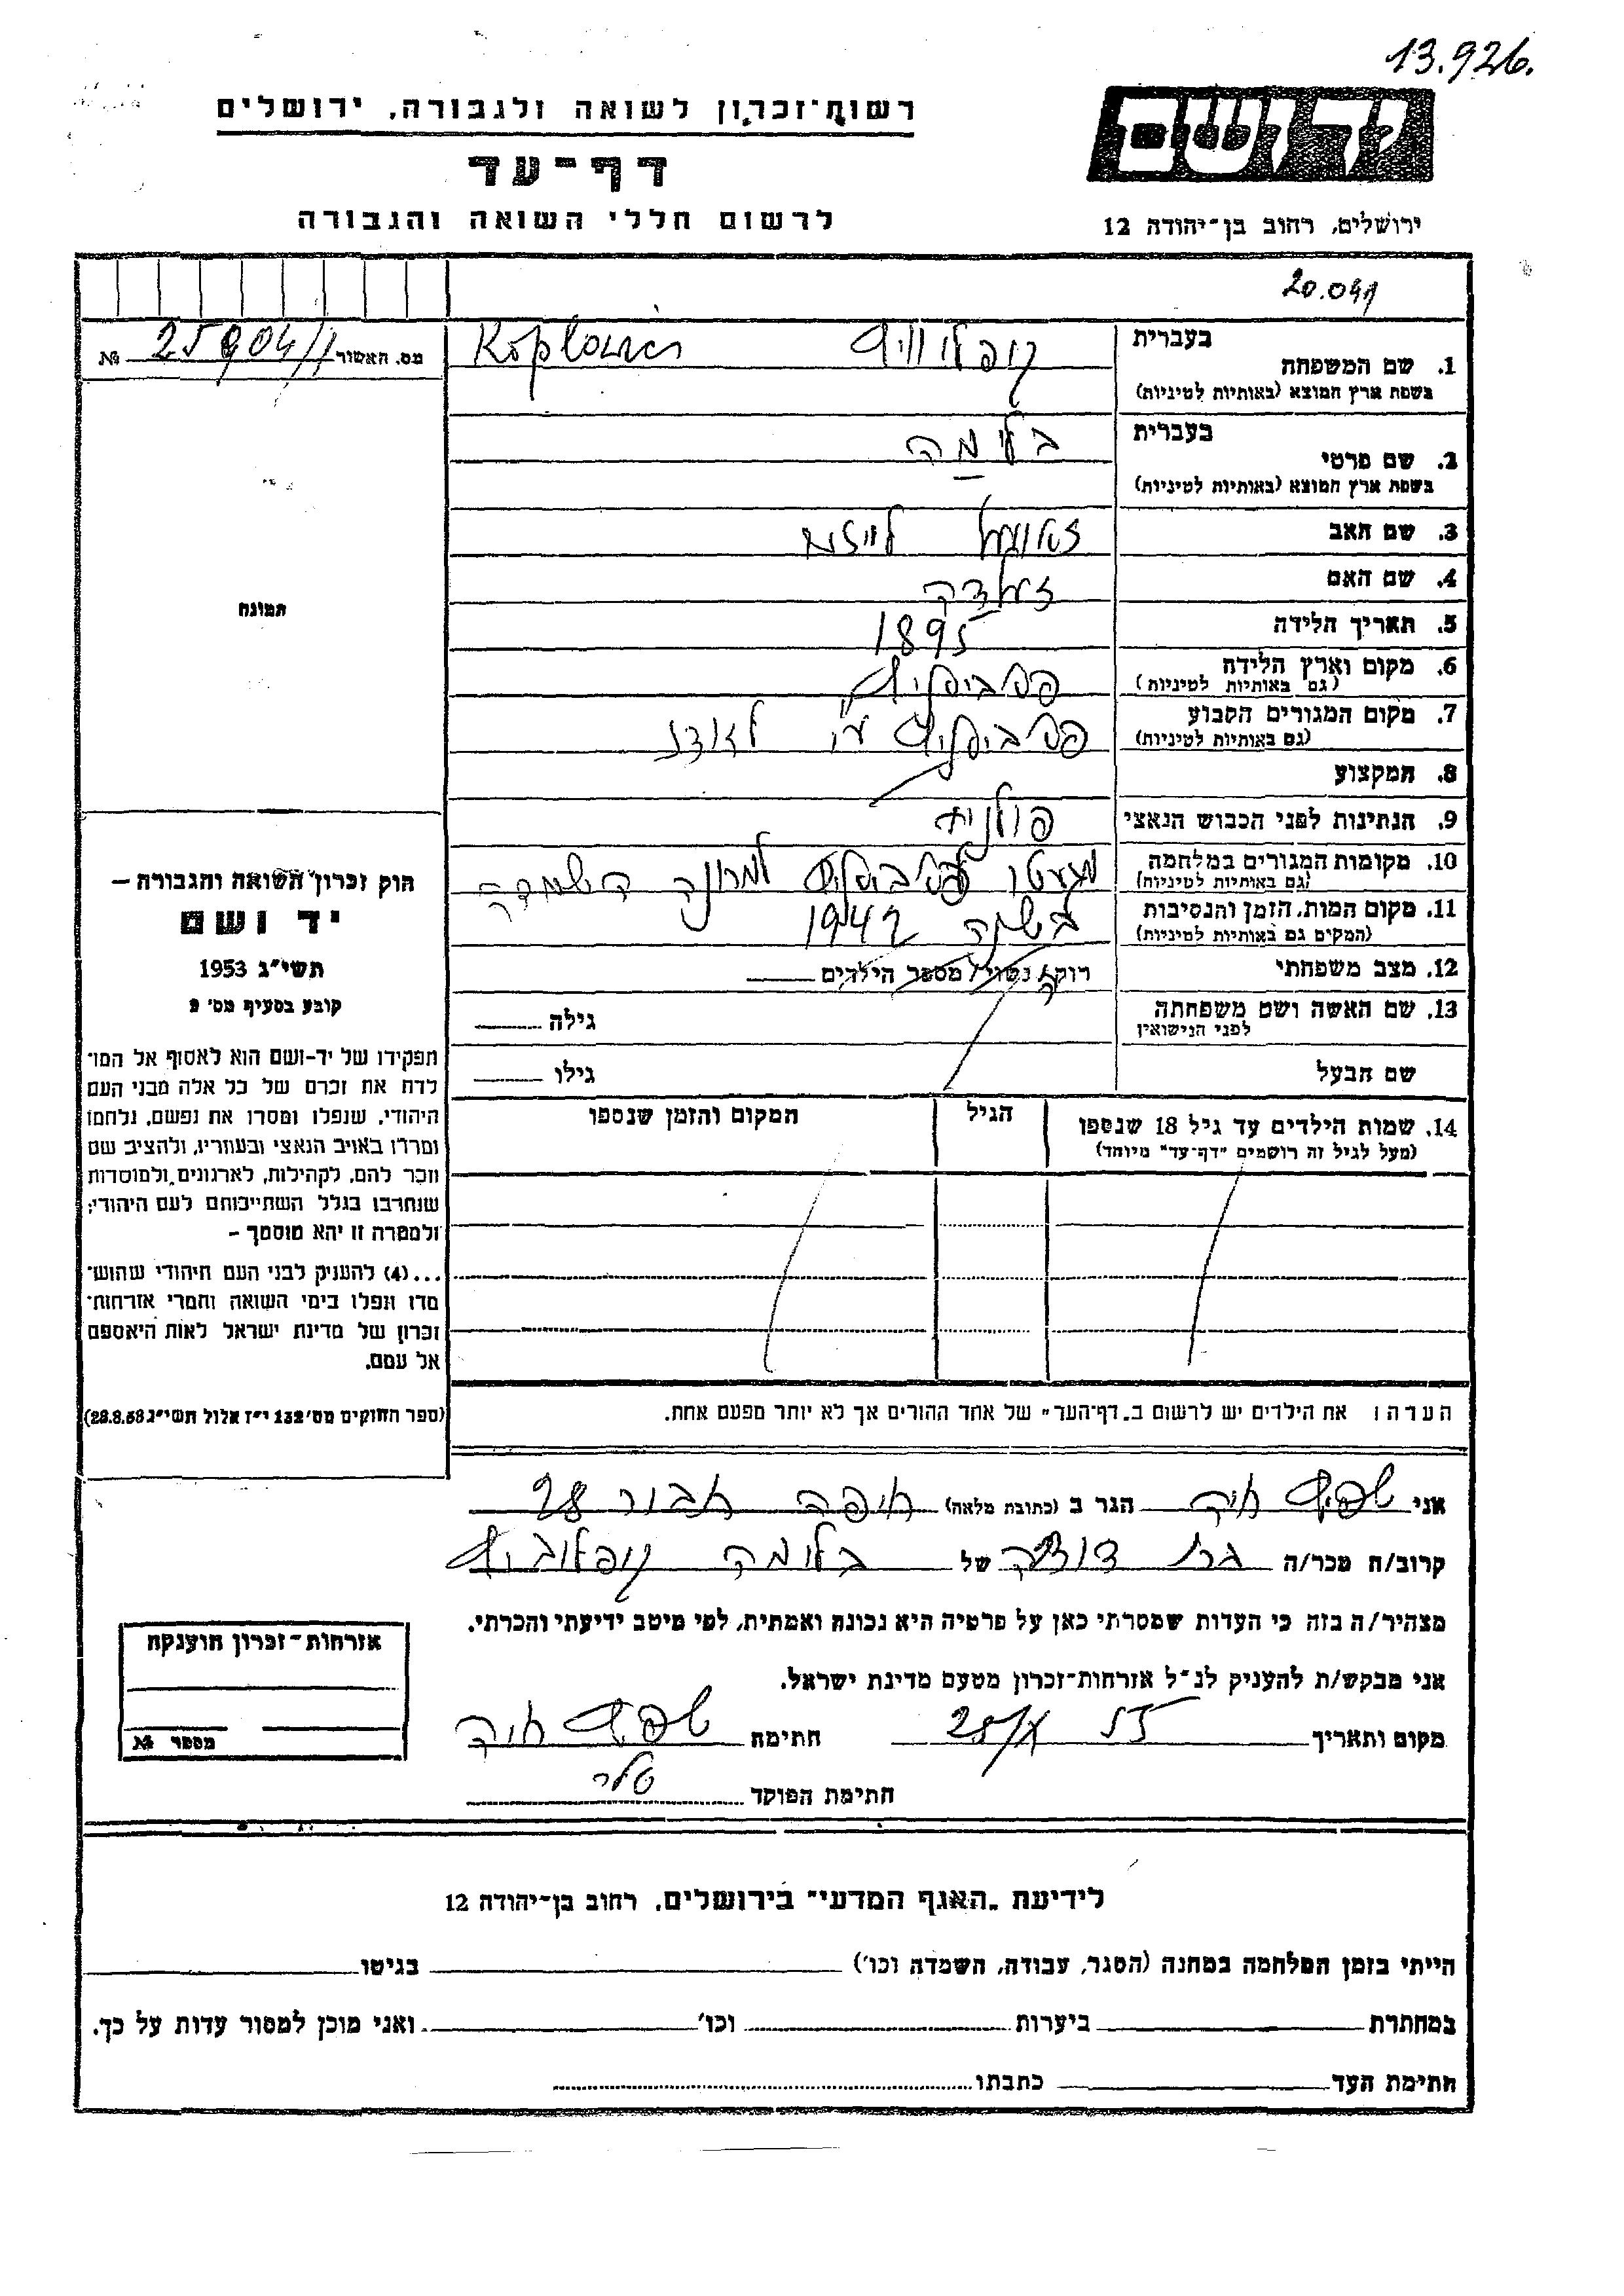 13.926.
רשות־זכרון לשואה ולגבורה, ירושלים
דף־עד
לרשום חללי השואה והגבורה
יד ושם
ירושלים, רחוב בן־יהודה 12
20.041
מס. האשור 25904/1 №
בעברית
1. שם המשפחה קופלוויץ
בשפת ארץ המוצא (באותיות לטיניות)
בעברית
2. שם פרטי בלימה
בשפת ארץ המוצא (באותיות לטיניות)
3. שם האב
4. שם האם זלדה
5. תאריך הלידה 1895
6. מקום וארץ הלידה פביניץ
(גם באותיות לטיניות)
7. מקום המגורים הקבוע ע״י לאדז
(גם באותיות לטיניות)
8. המקצוע
9. הנתינות לפני הכבוש הנאצי פולנית
10. מקומות המגורים במלחמה מגטו למחנה השמדה
(גם באותיות לטיניות)
11. מקום המות, הזמן והנסיבות בשנה 1942
(המקום גם באותיות לטיניות)
12. מצב משפחתי רוקה נשוי/ מספר הילדים
13. שם האשה ושם משפחתה גילה
לפני הנישואין
שם הבעל גילו
14. שמות הילדים עד גיל 18 שנספו הגיל המקום והזמן שנספו
(מעל לגיל זה רושמים "דף־עד" מיוחד)
הערה: את הילדים יש לרשום ב„דף־העד" של אחד ההורים אך לא יותר מפעם אחת.
תמונה
חוק זכרון השואה והגבורה –
יד ושם
תשי״ג 1953
קובע בסעיף מס׳ 2
תפקידו של יד-ושם הוא לאסוף אל המו־
לדת את זכרם של כל אלה מבני העם
היהודי, שנפלו ומסרו את נפשם, נלחמו
ומרדו באויב הנאצי ובעוזריו, ולהציב שם
וזכר להם, לקהילות, לארגונים ולמוסדות
שנחרבו בגלל השתייכותם לעם היהודי;
ולמטרה זו יהא מוסמך –
...(4) להעניק לבני העם היהודי שהוש־
מדו ונפלו בימי השואה והמרי אזרחות־
זכרון של מדינת ישראל לאות היאספם
אל עמם.
(ספר החוקים מס׳ 132 י״ז אלול תשי״ג 28.8.53)
אני שפיץ חיה הגר ב (כתובת מלאה) חיפה 28
קרוב/ה מכר/ה בת דודה של בלימה קופלוביץ
מצהיר/ה בזה כי העדות שמסרתי כאן על פרטיה היא נכונה ואמתית, לפי מיטב ידיעתי והכרתי.
אני מבקש/ת להעניק לנ״ל אזרחות־זכרון מטעם מדינת ישראל.
מקום ותאריך חתימה שפיץ חיה
חתימת הפוקד
אזרחות־זכרון הוענקה
מספר №
לידיעת „האגף המדעי״ בירושלים, רחוב בן־יהודה 12
הייתי בזמן המלחמה במחנה (הסגר, עבודה, השמדה וכו׳) בגיטו
במחתרת ביערות וכו׳ ואני מוכן למסור עדות על כך.
חתימת העד כתבתו